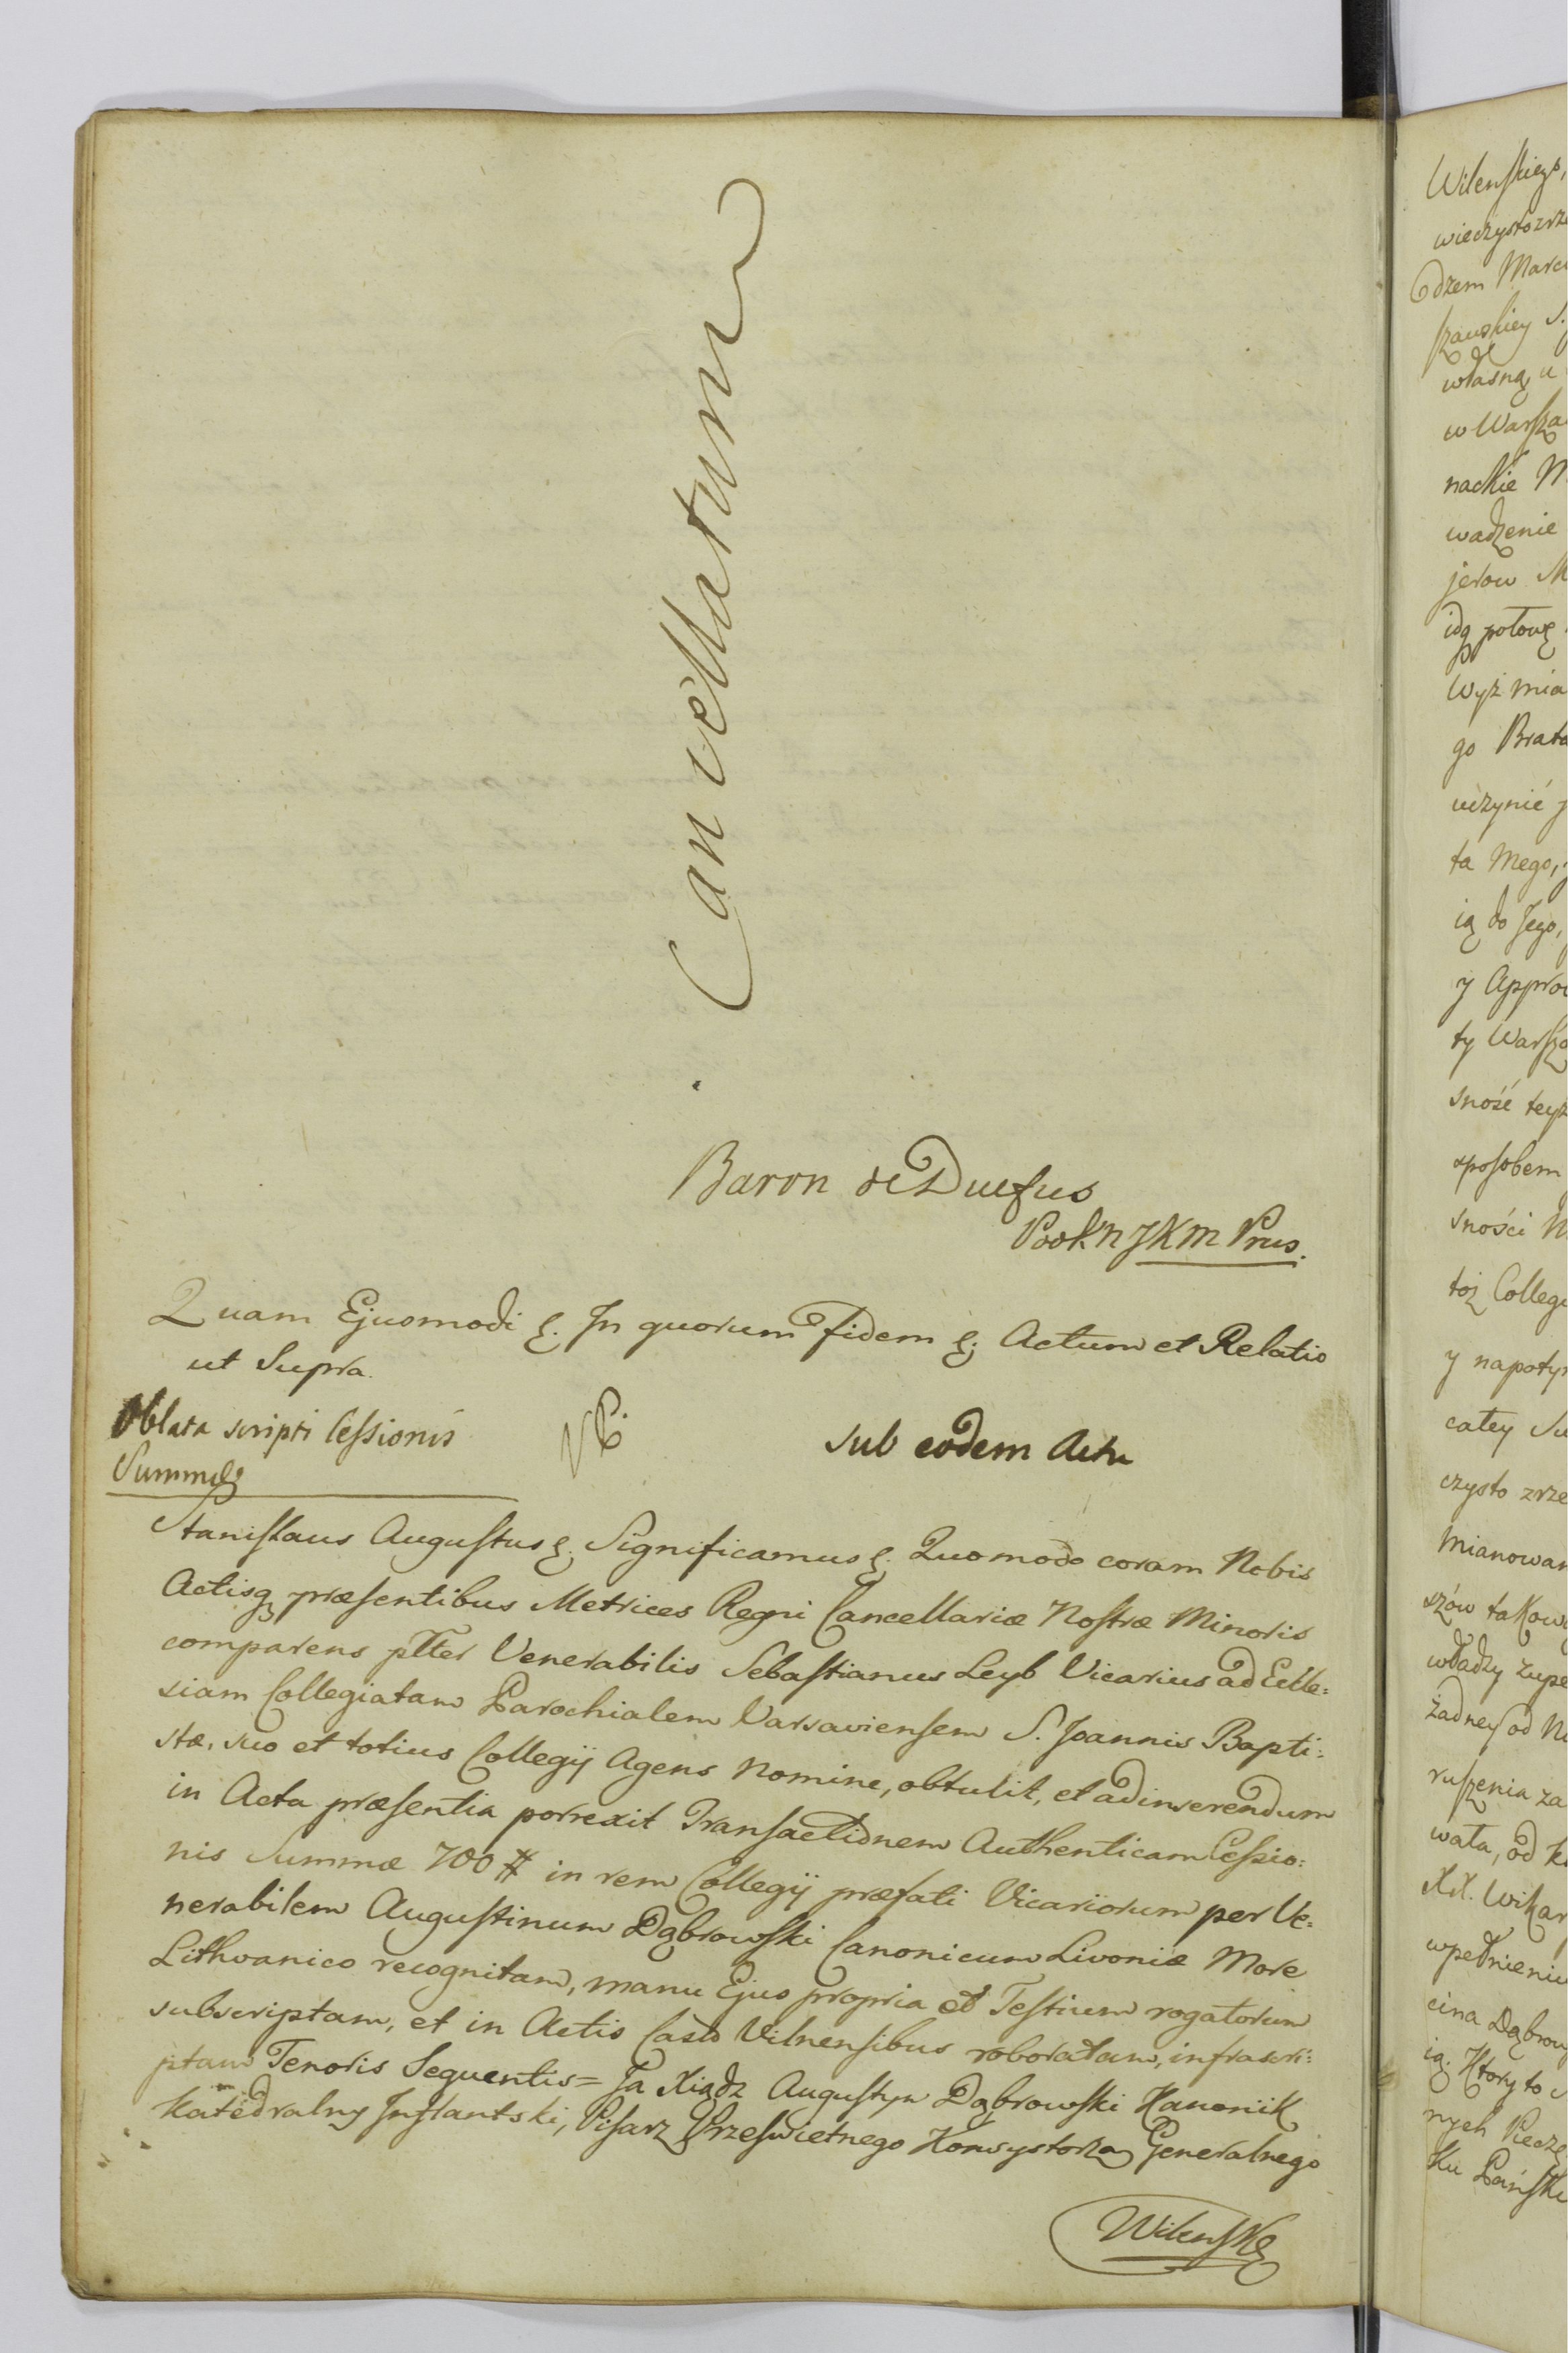 Cancellatum
Baron de Duefus
Pook'n JKM Prus.
Quam Ejusmodi &. In quorum fidem &. Actum et Relatio
ut Supra.
Oblata scripti Cessionis
Summæ
sub eodem Actu
Stanislaus Augustus &. Significamus &. Quomodo coram Nobis
Actisq præsentibus Metrices Regni Cancellariæ Nostræ Minoris
comparens pltter Venerabilis Sebastianus Leyb Vicarius ad Eccle=
siam Collegiatam Parochialem Varsaviensem S. Joannis Bapti=
stæ, suo et totius Collegij Agens Nomine, obtulit, et ad inserendum
in Acta præsentia porrexit Transactionem Authenticam Cessio=
nis Summæ 700 # in rem Collegij præfati Vicariorum per Ve=
nerabilem Augustinum Dąbrowski Canonicum Livoniæ More
Lithvanico recognitam, manu Ejus propria et Testium rogatorum
subscriptam, et in Actis Castr Vilnensibus roboratam, infrascri=
ptam Tenoris Sequentis = Ja Xiądz Augustyn Dąbrowski Kanonik
Katedralny Inflantski, Pisarz Prześwietnego Konsystorza Generalnego
Wilenskie
Wilenskiego,
wieczysto zrze
dzem Marci
szawskiey S.
własną u
w Warsza
nackie M
wadzenie
jerow M
idą połowę
Wyż mia
go Brata
uczynić j
ta Mego, j
ią do Jego,
y Approb
ty Warsza
sność teyż
sposobem
sności N
toż Colleg
y napoty
całey Su
czysto zrze
Mianowan
szów takow
władzy zupe
żadney od N
ruszenia za
wała, od k
XX. Wikar
wpełnieniu
cina Dąbrow
ią. Który to
nych Piecze
Ku Pańsk